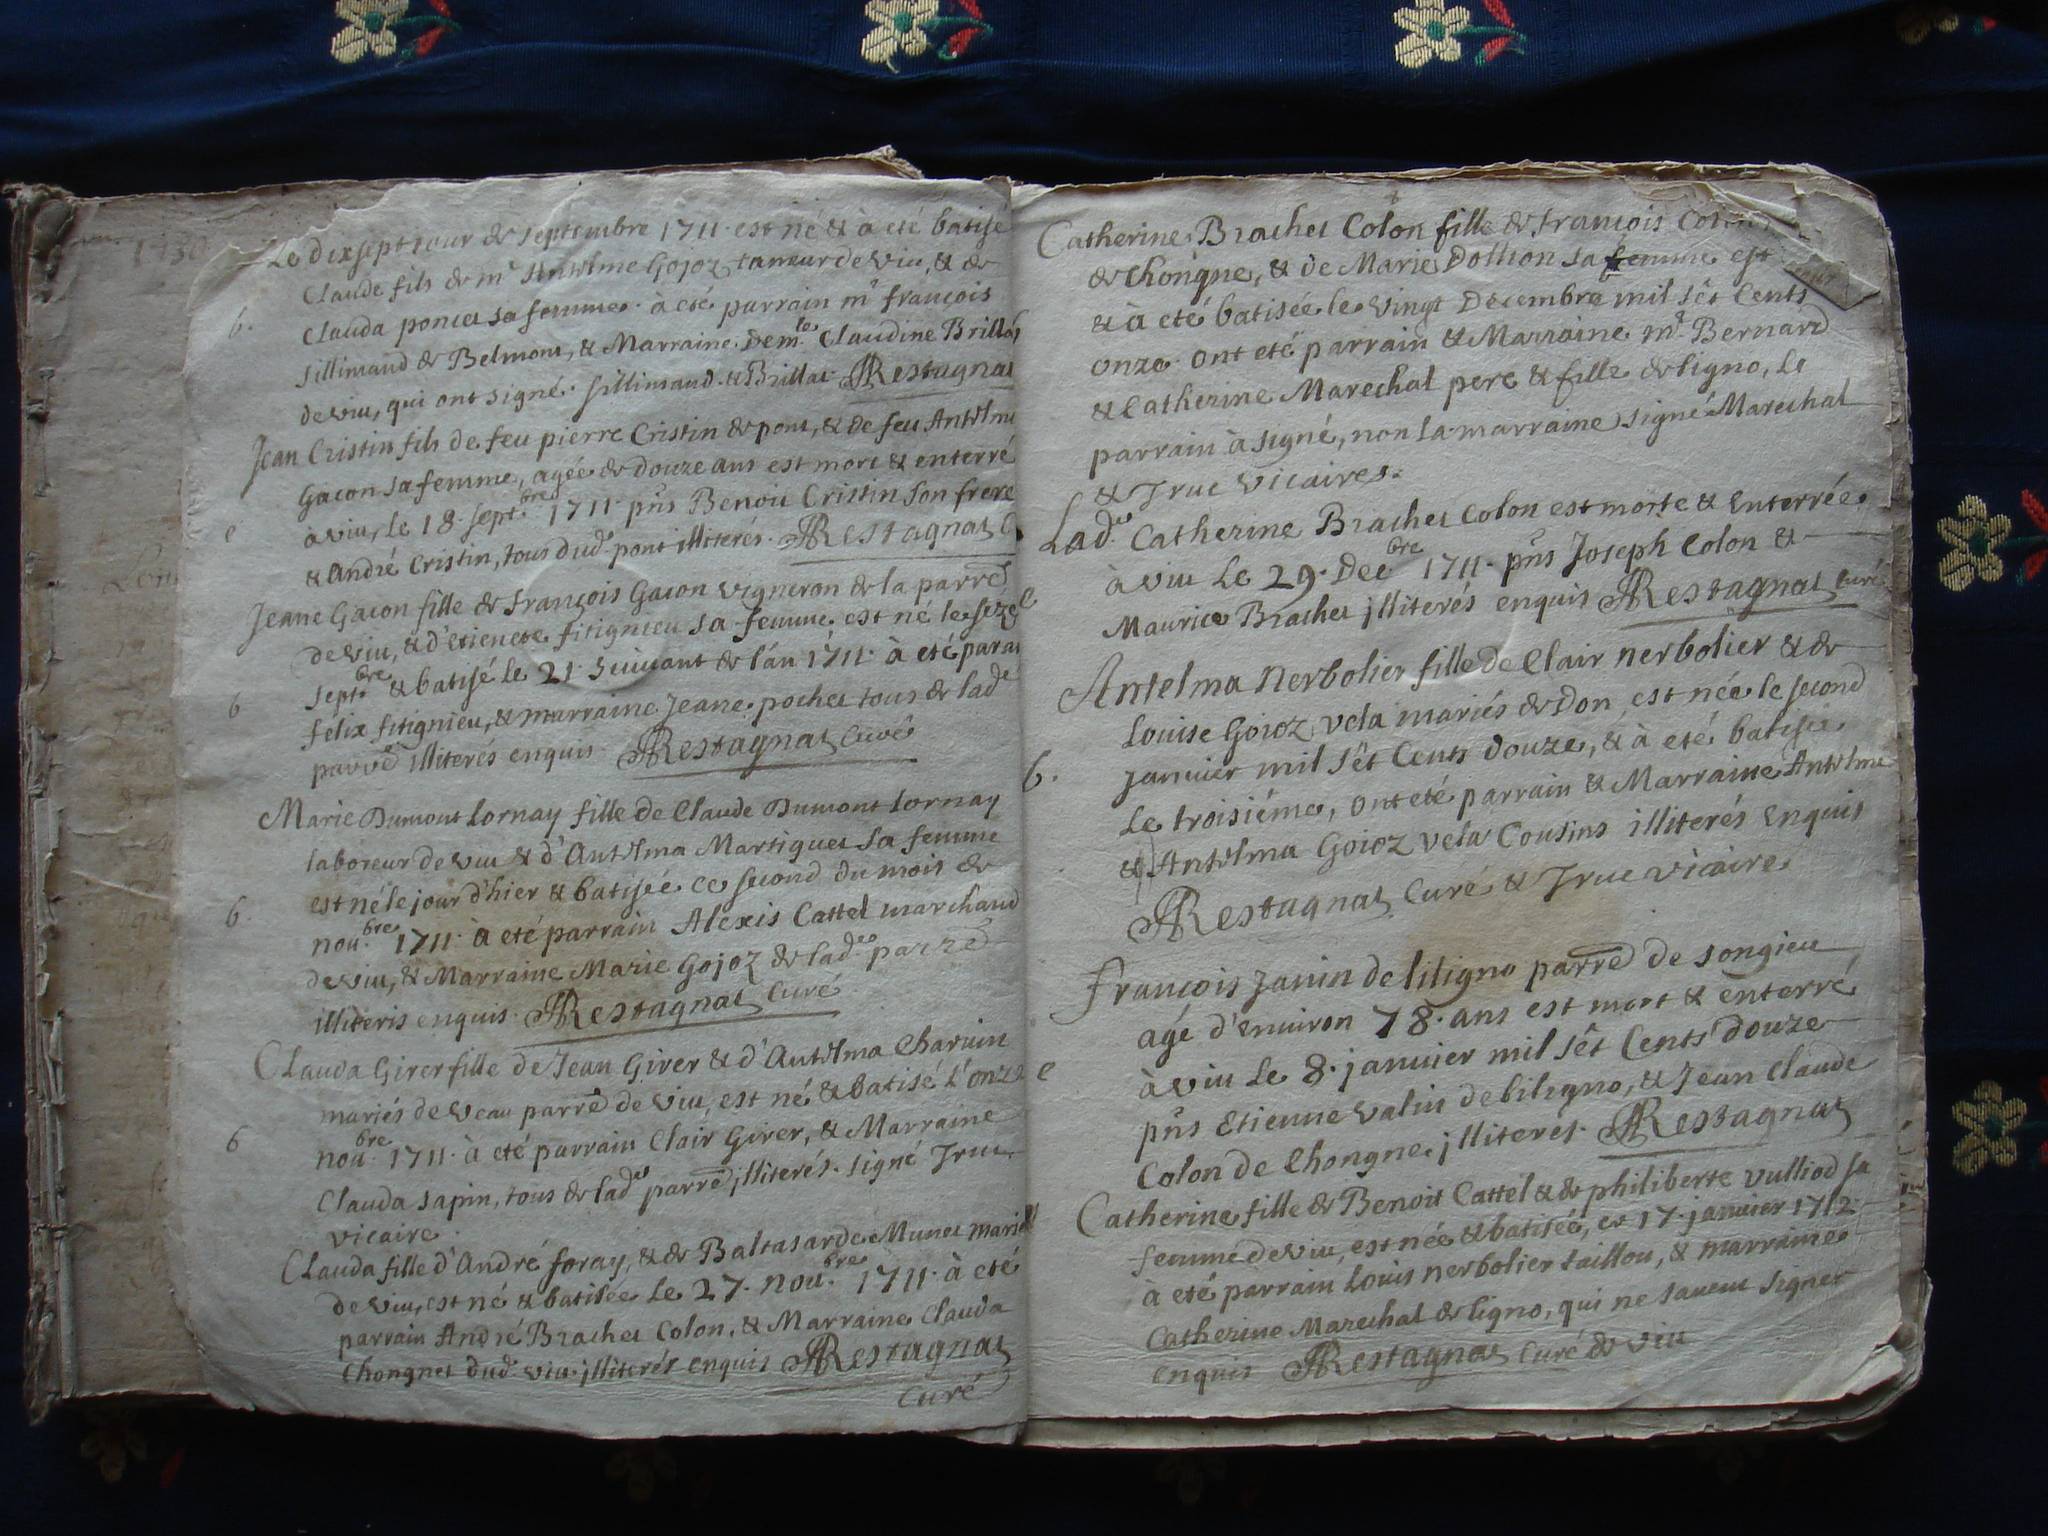 Le dixsept jour de septembre 1711 est né & à eté batisé
Claude fils de mr Antelme Gojoz tanneur de viu, & de
b. Clauda poncet sa femme. à eté parrain mr françois
sillimand de Belmont, & Marraine Demle Claudine Brillat
de viu, qui ont signé. sillimand. & Brillat. Restagnat
Jean Cristin fils de feu pierre Cristin de pont, & de feu Antelme
Gacon sa femme, agée de douze ans est mort & enterré
e à viu, le 18. septbre 1711. pns Benoit Cristin son frere
& André Cristin, tous dud. pont illiterés. Restagnat C
Jeane Gacon fille de françois Gacon vigneron de la parre
de viu, & d'etienete fitignieu sa femme est né le seze
b septbre & batisé le 21. suivant de l'an 1711. à eté parai
félix fitignieu, & marraine Jeane pochet tous de lade
parre illiterés enquis. Restagnat Curé
Marie Dumont Lornay fille de Claude Dumont Lornay
laboreur de viu & d'Antelma Martiguet sa femme
b. est né le jour d'hier & batisée ce second du mois de
novbre 1711. à eté parrain Alexis Cattel marchand
de viu, & Marraine Marie Gojoz de lade parre
illiteris enquis. Restagnat Curé
Clauda Girer fille de Jean Girer & d'Antelma Charvin
mariés de veau parre de viu, est né & batisé l'onze
b novbre 1711. à eté parrain Clair Girer, & Marraine
Clauda sapin, tous de lade parre illiterés. signé Truc
vicaire.
Clauda fille d'André foray, & de Baltasarde Munet marié
de viu, est né & batisée Le 27. novbre 1711. à eté
parrain André Brachet Colon, & Marraine Clauda
Chongnet dud. viu. illiterés enquis Restagnat
Curé
Catherine Brachet Colon fille de françois Colon
de Chongne, & de Marie Dollion sa femme est
& à eté batisée le vingt Decembre mil sêt Cents
onze. ont eté parrain & Marraine mr Bernard
& Catherine Marechal pere & fille de ligno, le
parrain à signé, non la marraine signé Marechal
& Truc vicaires.
Lade Catherine Brachet Colon est morte & enterrée
à viu Le 29. Decbre 1711. pns Joseph Colon &
e Maurice Brachet illiterés enquis Restagnat Curé
Antelma Nerbolier fille de Clair nerbolier & de
Louise Goioz vela mariés de Don est née le second
b. janvier mil sêt Cents douze, & à eté batisée
Le troisiéme, ont eté parrain & Marraine Antelme
& Antelma Goioz vela Cousins illiterés enquis
Restagnat Curé & Truc vicaire
françois Janin de liligno parre de songieu
agé d'environ 78. ans est mort & enterré
e à viu Le 8. janvier mil sêt Cents douze
pns Etienne valin de liligno, & Jean Claude
Colon de Chongne illiteres. Restagnat
Catherine fille de Benoit Cattel & de philiberte vulliod sa
femme de viu, est née & batisée, ce 17. janvier 1712.
à eté parrain Louis nerbolier taillou, & marraine
Catherine Marechal de ligno, qui ne savent signer
enquis Restagnat Curé de viu